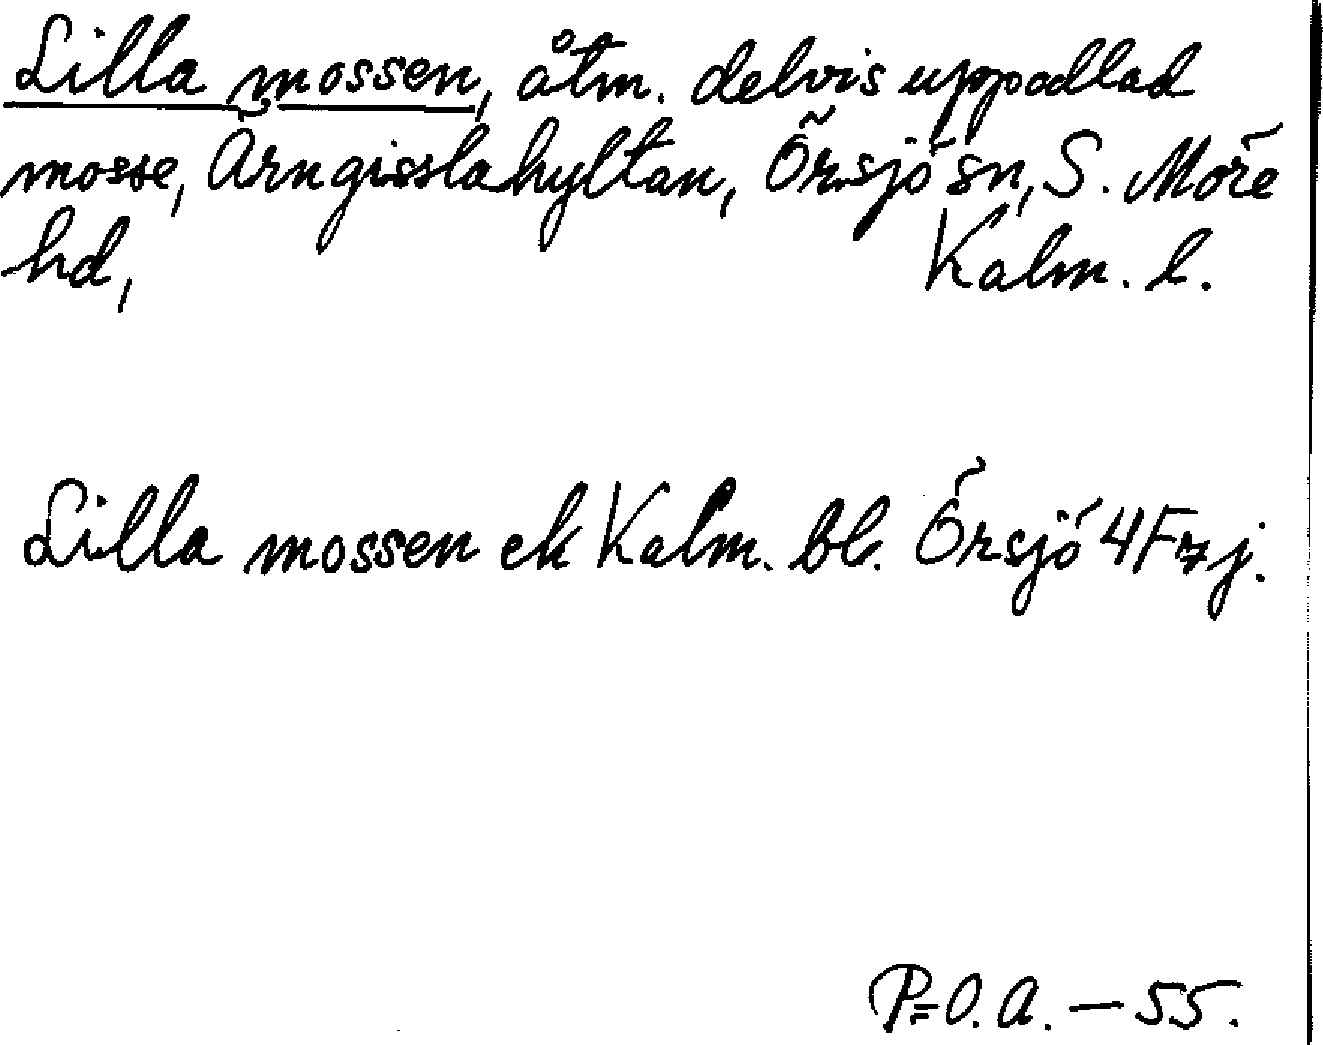 Lilla mossen, åtm. delvis uppodlad
mosse, Ärngisslahyltan, Örsjö sn, S. Möre
hd, Kalm. l.
Lilla mossen ek Kalm. bl. Örsjö 4F7j.
P-O.A. — 55.